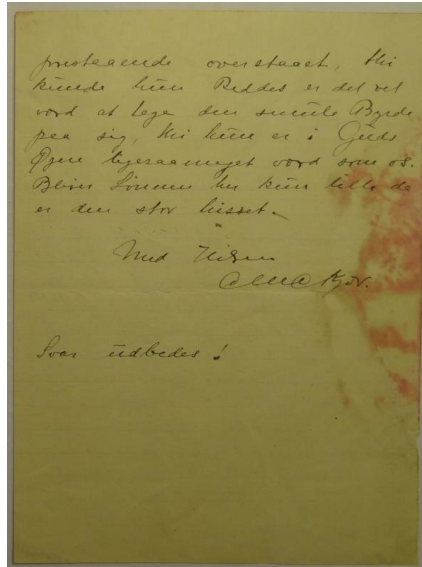 forestaaende overstaaet, thi
kunde hun Reddes er det vel
værd at tage den smule Byrde
paa sig, thi hun er i Guds
Øjne ligesaameget værd som os.
Bliver Lønnen her kun lille da
er den stor hisset.
Med Hilsen
Svar udbedes!